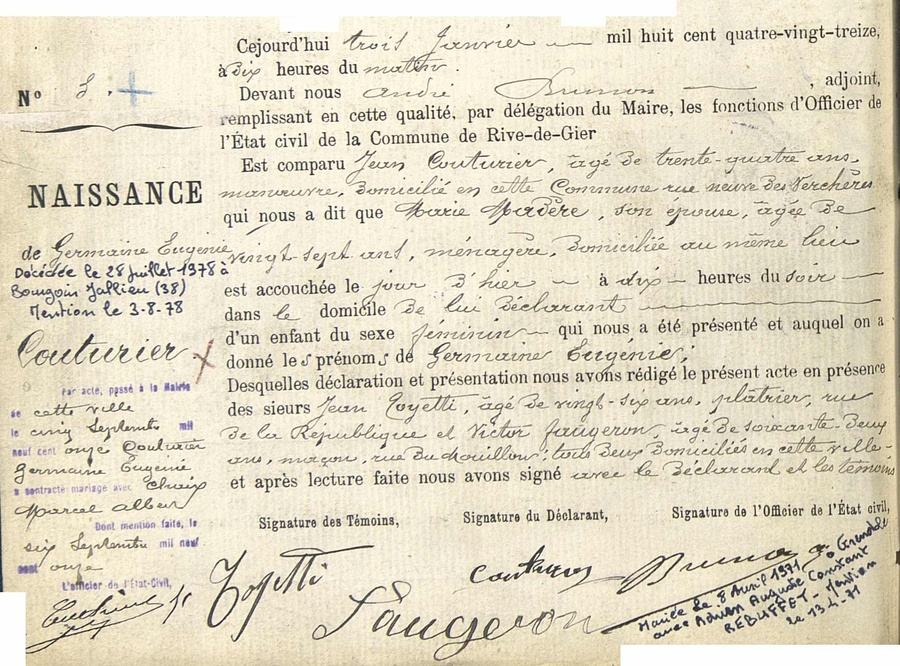 Nº 3.
NAISSANCE
de Germaine Eugénie
Décédée le 28 juillet 1978 à
Bourgoin Jallieu (38)
Mention le 3-8-78
Couturier
Par acte, passé à la Mairie
de cette ville
le cinq Septembre mil
neuf cent onze Couturier
Germaine Eugénie
a contracté mariage avec Choix
Marcel Albert
Dont mention faite, le
six Septembre mil neuf
cent onze
L'officier de l'Etat-Civil,
Cejourd'hui trois Janvier mil huit cent quatre-vingt-treize,
à dix heures du matin.
Devant nous André Brunon, adjoint,
remplissant en cette qualité, par délégation du Maire, les fonctions d'Officier de
l'État civil de la Commune de Rive-de-Gier
Est comparu Jean Couturier, âgé de trente-quatre ans,
manœuvre, domicilié en cette Commune rue neuve des Verchères
qui nous a dit que Marie Madère, son épouse, âgée de
vingt-sept ans, ménagère, domiciliée au même lieu
est accouchée le jour d'hier à dix heures du soir
dans le domicile de lui déclarant
d'un enfant du sexe féminin qui nous a été présenté et auquel on a
donné les prénoms de Germaine Eugénie;
Desquelles déclaration et présentation nous avons rédigé le présent acte en présence
des sieurs Jean Toyetti, âgé de vingt-six ans, plâtrier, rue
de la République et Victor Faugeron, âgé de soixante-deux
ans, maçon, rue du mouillon; tous deux domiciliés en cette ville
et après lecture faite nous avons signé avec le déclarant et les témoins
Signature des Témoins, Signature du Déclarant, Signature de l'Officier de l'État civil,
Toyetti Couturier Brunon
Faugeron
Mariée le 8 Avril 1971 à Grenoble
avec Adrien Auguste Constant
REBUFFET - Mention
le 13-4-71